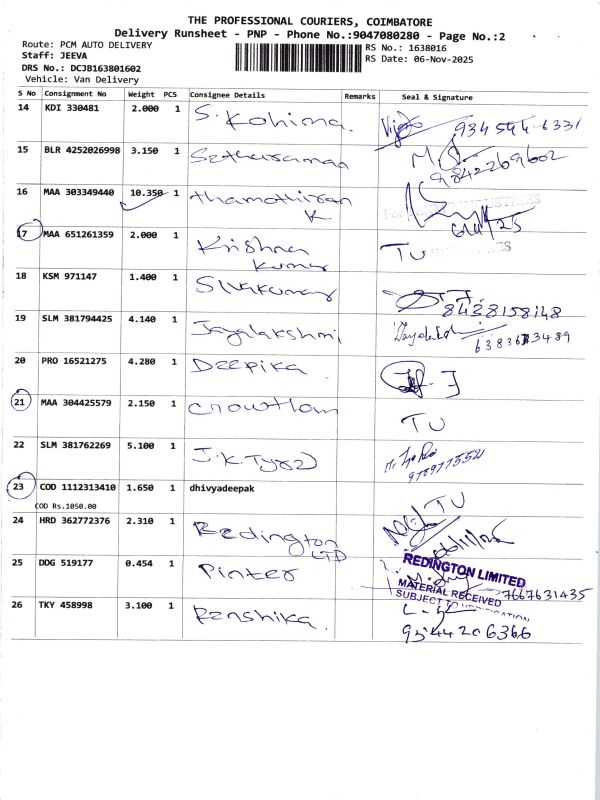 THE PROFESSIONAL COURIERS, COIMBATORE
Delivery Runsheet - PNP - Phone No.:9047080280 - Page No.:2
Route: PCM AUTO DELIVERY
Staff: JEEVA
DRS No.: DCJB163801602
Vehicle: Van Delivery
RS No.: 1638016
RS Date: 06-Nov-2025
S No Consignment No Weight PCS Consignee Details Remarks Seal & Signature
14 KDI 330481 2.000 1 S. Kohima. 934544 6331
15 BLR 4252026998 3.150 1 9842269602
16 MAA 303349440 10.350 1
17 MAA 651261359 2.000 1 Krishna Kumar TU
18 KSM 971147 1.400 1 Sivakumar 8428158148
19 SLM 381794425 4.140 1 Jayalakshmi
20 PRO 16521275 4.280 1 Deepika
21 MAA 304425579 2.150 1 TU
22 SLM 381762269 5.100 1
23 COD 1112313410 1.650 1 dhivyadeepak TU
COD Rs.1050.00
24 HRD 362772376 2.310 1 Redington LTD
REDINGTON LIMITED
25 DDG 519177 0.454 1 7667631435
MATERIAL RECEIVED
SUBJECT TO VERIFICATION
26 TKY 458998 3.100 1 Renshika. 9544206366